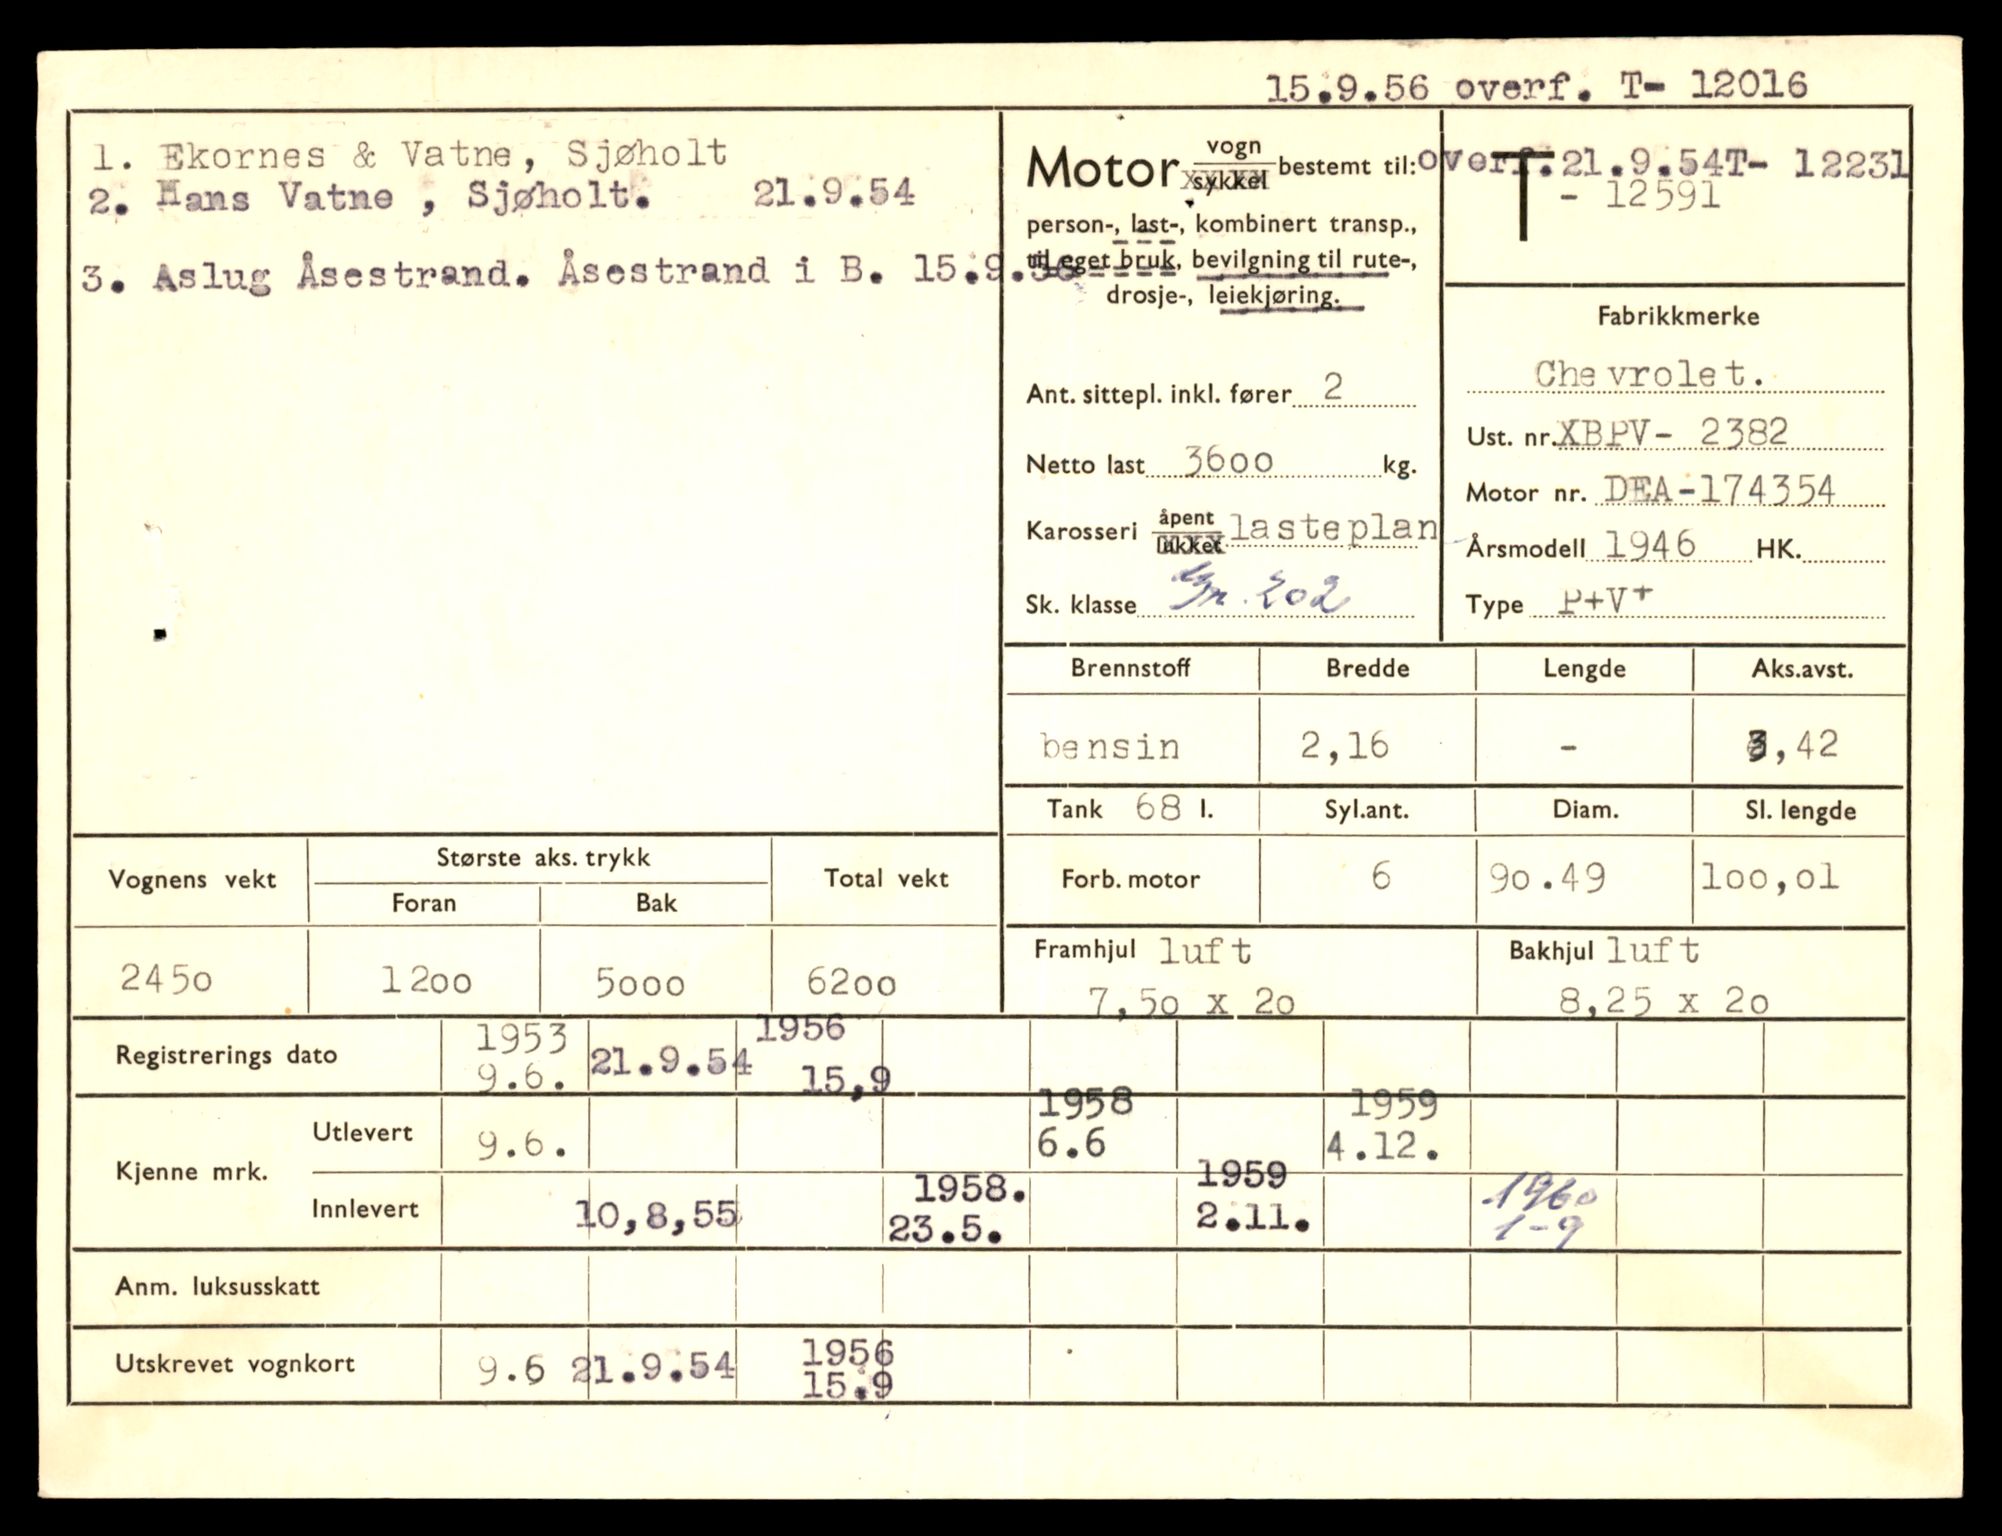 15.9.56 overf. T- 12016
1. Ekornes & Vatne, Sjøholt
2. Hans Vatne , Sjøholt. 21.9.54
3. Aslug Åsestrand. Åsestrand i B. 15.9.56
Motor vogn sykkel bestemt til:
person-, last-, kombinert transp.,
til eget bruk, bevilgning til rute-,
drosje-, leiekjøring.
overf. 21.9.54 T- 12231
T - 12591
Ant. sittepl. inkl. fører 2
Netto last 3600 kg.
Karosseri åpent lukket lasteplan
Sk. klasse Gr. 202
Fabrikkmerke
Chevrolet.
Ust. nr. XBPV- 2382
Motor nr. DEA-174354
Årsmodell 1946 HK.
Type P+V+
Brennstoff Bredde Lengde Aks.avst.
bensin 2,16 - 3,42
Tank 68 l. Syl.ant. Diam. Sl. lengde
Forb. motor 6 90.49 100,01
Framhjul luft Bakhjul luft
7,50 x 20 8,25 x 20
Vognens vekt Største aks. trykk Total vekt
Foran Bak
2450 1200 5000 6200
Registrerings dato 1953 9.6. 21.9.54 1956 15,9
Kjenne mrk.
Utlevert 9.6. 1958 6.6 1959 4.12.
Innlevert 10,8,55 1958. 23.5. 1959 2.11. 1960 1-9
Anm. luksusskatt
Utskrevet vognkort 9.6 21.9.54 1956 15.9